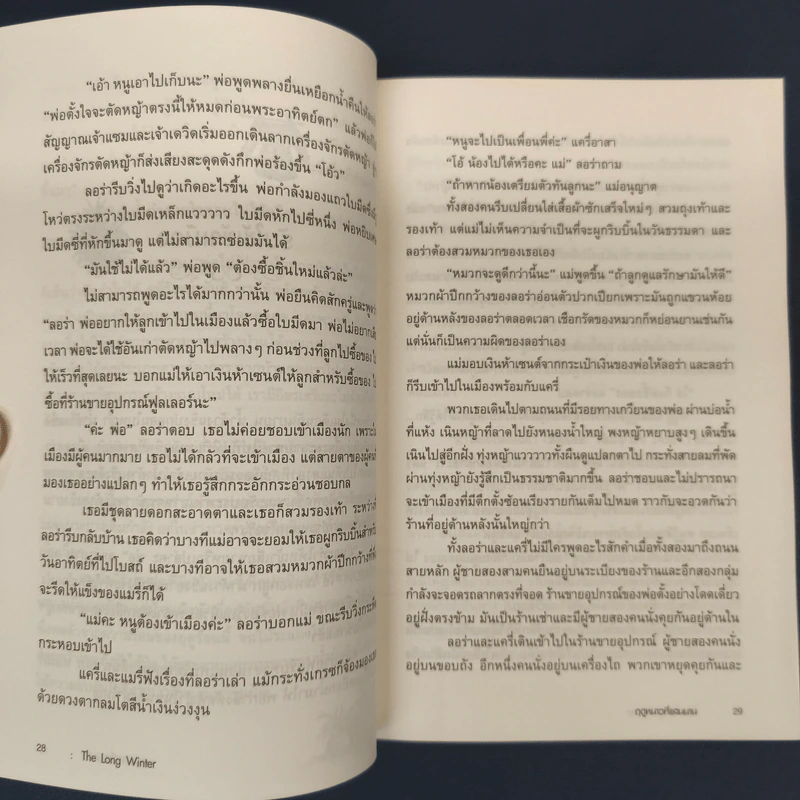 “เอ้า หนูเอาไปเก็บนะ” พ่อพูดพลางยื่นเหยือกน้ำคืนให้
“พ่อตั้งใจจะตัดหญ้าตรงนี้ให้หมดก่อนพระอาทิตย์ตก” แล้ว
สัญญาณเจ้าแซมและเจ้าเดวิดเริ่มออกเดินลากเครื่องจักรตัดหญ้า
เครื่องจักรตัดหญ้าก็ส่งเสียงสะดุดดังกึกพ่อร้องขึ้น “โอ้ว”
ลอร่ารีบวิ่งไปดูว่าเกิดอะไรขึ้น พ่อกำลังมองแถวใบมีดซึ่ง
โหว่ตรงระหว่างใบมีดเหล็กแวววาว ใบมีดหักไปซี่หนึ่ง
ใบมีดซี่ที่หักขึ้นมาดู แต่ไม่สามารถซ่อมมันได้
“มันใช้ไม่ได้แล้ว” พ่อพูด “ต้องซื้อชิ้นใหม่แล้วล่ะ”
ไม่สามารถพูดอะไรได้มากกว่านั้น พ่อยืนคิดสักครู่และพูดว่า
“ลอร่า พ่ออยากให้ลูกเข้าไปในเมืองแล้วซื้อใบมีดมา พ่อไม่อยาก
เวลา พ่อจะได้ใช้อันเก่าตัดหญ้าไปพลางๆ ก่อนช่วงที่ลูกไปซื้อของ
ให้เร็วที่สุดเลยนะ บอกแม่ให้เอาเงินห้าเซนต์ให้ลูกสำหรับซื้อของ
ซื้อที่ร้านขายอุปกรณ์ฟูลเลอร์นะ”
“ค่ะ พ่อ” ลอร่าตอบ เธอไม่ค่อยชอบเข้าเมืองนัก เพราะใน
เมืองมีผู้คนมากมาย เธอไม่ได้กลัวที่จะเข้าเมือง แต่สายตาของผู้คน
มองเธออย่างแปลกๆ ทำให้เธอรู้สึกกระอักกระอ่วนชอบกล
เธอมีชุดลายดอกสะอาดตาและเธอก็สวมรองเท้า ระหว่างที่
ลอร่ารีบกลับบ้าน เธอก็คิดว่าบางทีแม่อาจจะยอมให้เธอผูกริบบิ้นสำหรับ
วันอาทิตย์ที่ไปโบสถ์ และบางทีอาจให้เธอสวมหมวกผ้าปีกกว้างที่
จะรีดให้แข็งของแมรี่ก็ได้
“แม่คะ หนูต้องเข้าเมืองค่ะ” ลอร่าบอกแม่ ขณะรีบวิ่งกระหืด
กระหอบเข้าไป
แครี่และแมรี่ฟังเรื่องที่ลอร่าเล่า แม้กระทั่งเกรซก็จ้องมอง
ด้วยดวงตากลมโตสีน้ำเงินง่วงงุน
28 : The Long Winter
“หนูจะไปเป็นเพื่อนพี่ค่ะ” แครี่อาสา
“โอ้ น้องไปได้หรือคะ แม่” ลอร่าถาม
“ถ้าหากน้องเตรียมตัวทันลูกนะ” แม่อนุญาต
ทั้งสองคนรีบเปลี่ยนใส่เสื้อผ้าซักเสร็จใหม่ๆ สวมถุงเท้าและ
รองเท้า แต่แม่ไม่เห็นความจำเป็นที่จะผูกริบบิ้นในวันธรรมดา และ
ลอร่าต้องสวมหมวกของเธอเอง
“หมวกจะดูดีกว่านี้นะ” แม่พูดขึ้น “ถ้าลูกดูแลรักษามันให้ดี”
หมวกผ้าปีกกว้างของลอร่าอ่อนตัวปวกเปียกเพราะมันถูกแขวนห้อย
อยู่ด้านหลังของลอร่าตลอดเวลา เชือกรัดของหมวกก็หย่อนยานเช่นกัน
แต่นั่นก็เป็นความผิดของลอร่าเอง
แม่มอบเงินห้าเซนต์จากกระเป๋าเงินของพ่อให้ลอร่า และลอร่า
ก็รีบเข้าไปในเมืองพร้อมกับแครี่
พวกเธอเดินไปตามถนนที่มีรอยทางเกวียนของพ่อ ผ่านบ่อน้ำ
ที่แห้ง เนินหญ้าที่ลาดไปยังหนองน้ำใหญ่ พงหญ้าหยาบสูงๆ เดินขึ้น
เนินไปสู่อีกฝั่ง ทุ่งหญ้าแวววาวทั้งผืนดูแปลกตาไป กระทั่งสายลมที่พัด
ผ่านทุ่งหญ้ายังรู้สึกเป็นธรรมชาติมากขึ้น ลอร่าชอบและไม่ปรารถนา
จะเข้าเมืองที่มีตึกตั้งซ้อนเรียงรายกันเต็มไปหมด ราวกับจะอวดกันว่า
ร้านที่อยู่ด้านหลังนั้นใหญ่กว่า
ทั้งลอร่าและแครี่ไม่มีใครพูดอะไรสักคำเมื่อทั้งสองมาถึงถนน
สายหลัก ผู้ชายสองสามคนยืนอยู่บนระเบียงของร้านและอีกสองกลุ่ม
กำลังจะจอดรถลากตรงที่จอด ร้านขายอุปกรณ์ของพ่อตั้งอย่างโดดเดี่ยว
อยู่ฝั่งตรงข้าม มันเป็นร้านเช่าและมีผู้ชายสองคนนั่งคุยกันอยู่ด้านใน
ลอร่าและแครี่เดินเข้าไปในร้านขายอุปกรณ์ ผู้ชายสองคนนั่ง
อยู่บนขอบถัง อีกหนึ่งคนนั่งอยู่บนเครื่องไถ พวกเขาหยุดคุยกันและ
ฤดูหนาวที่แสนนาน 29